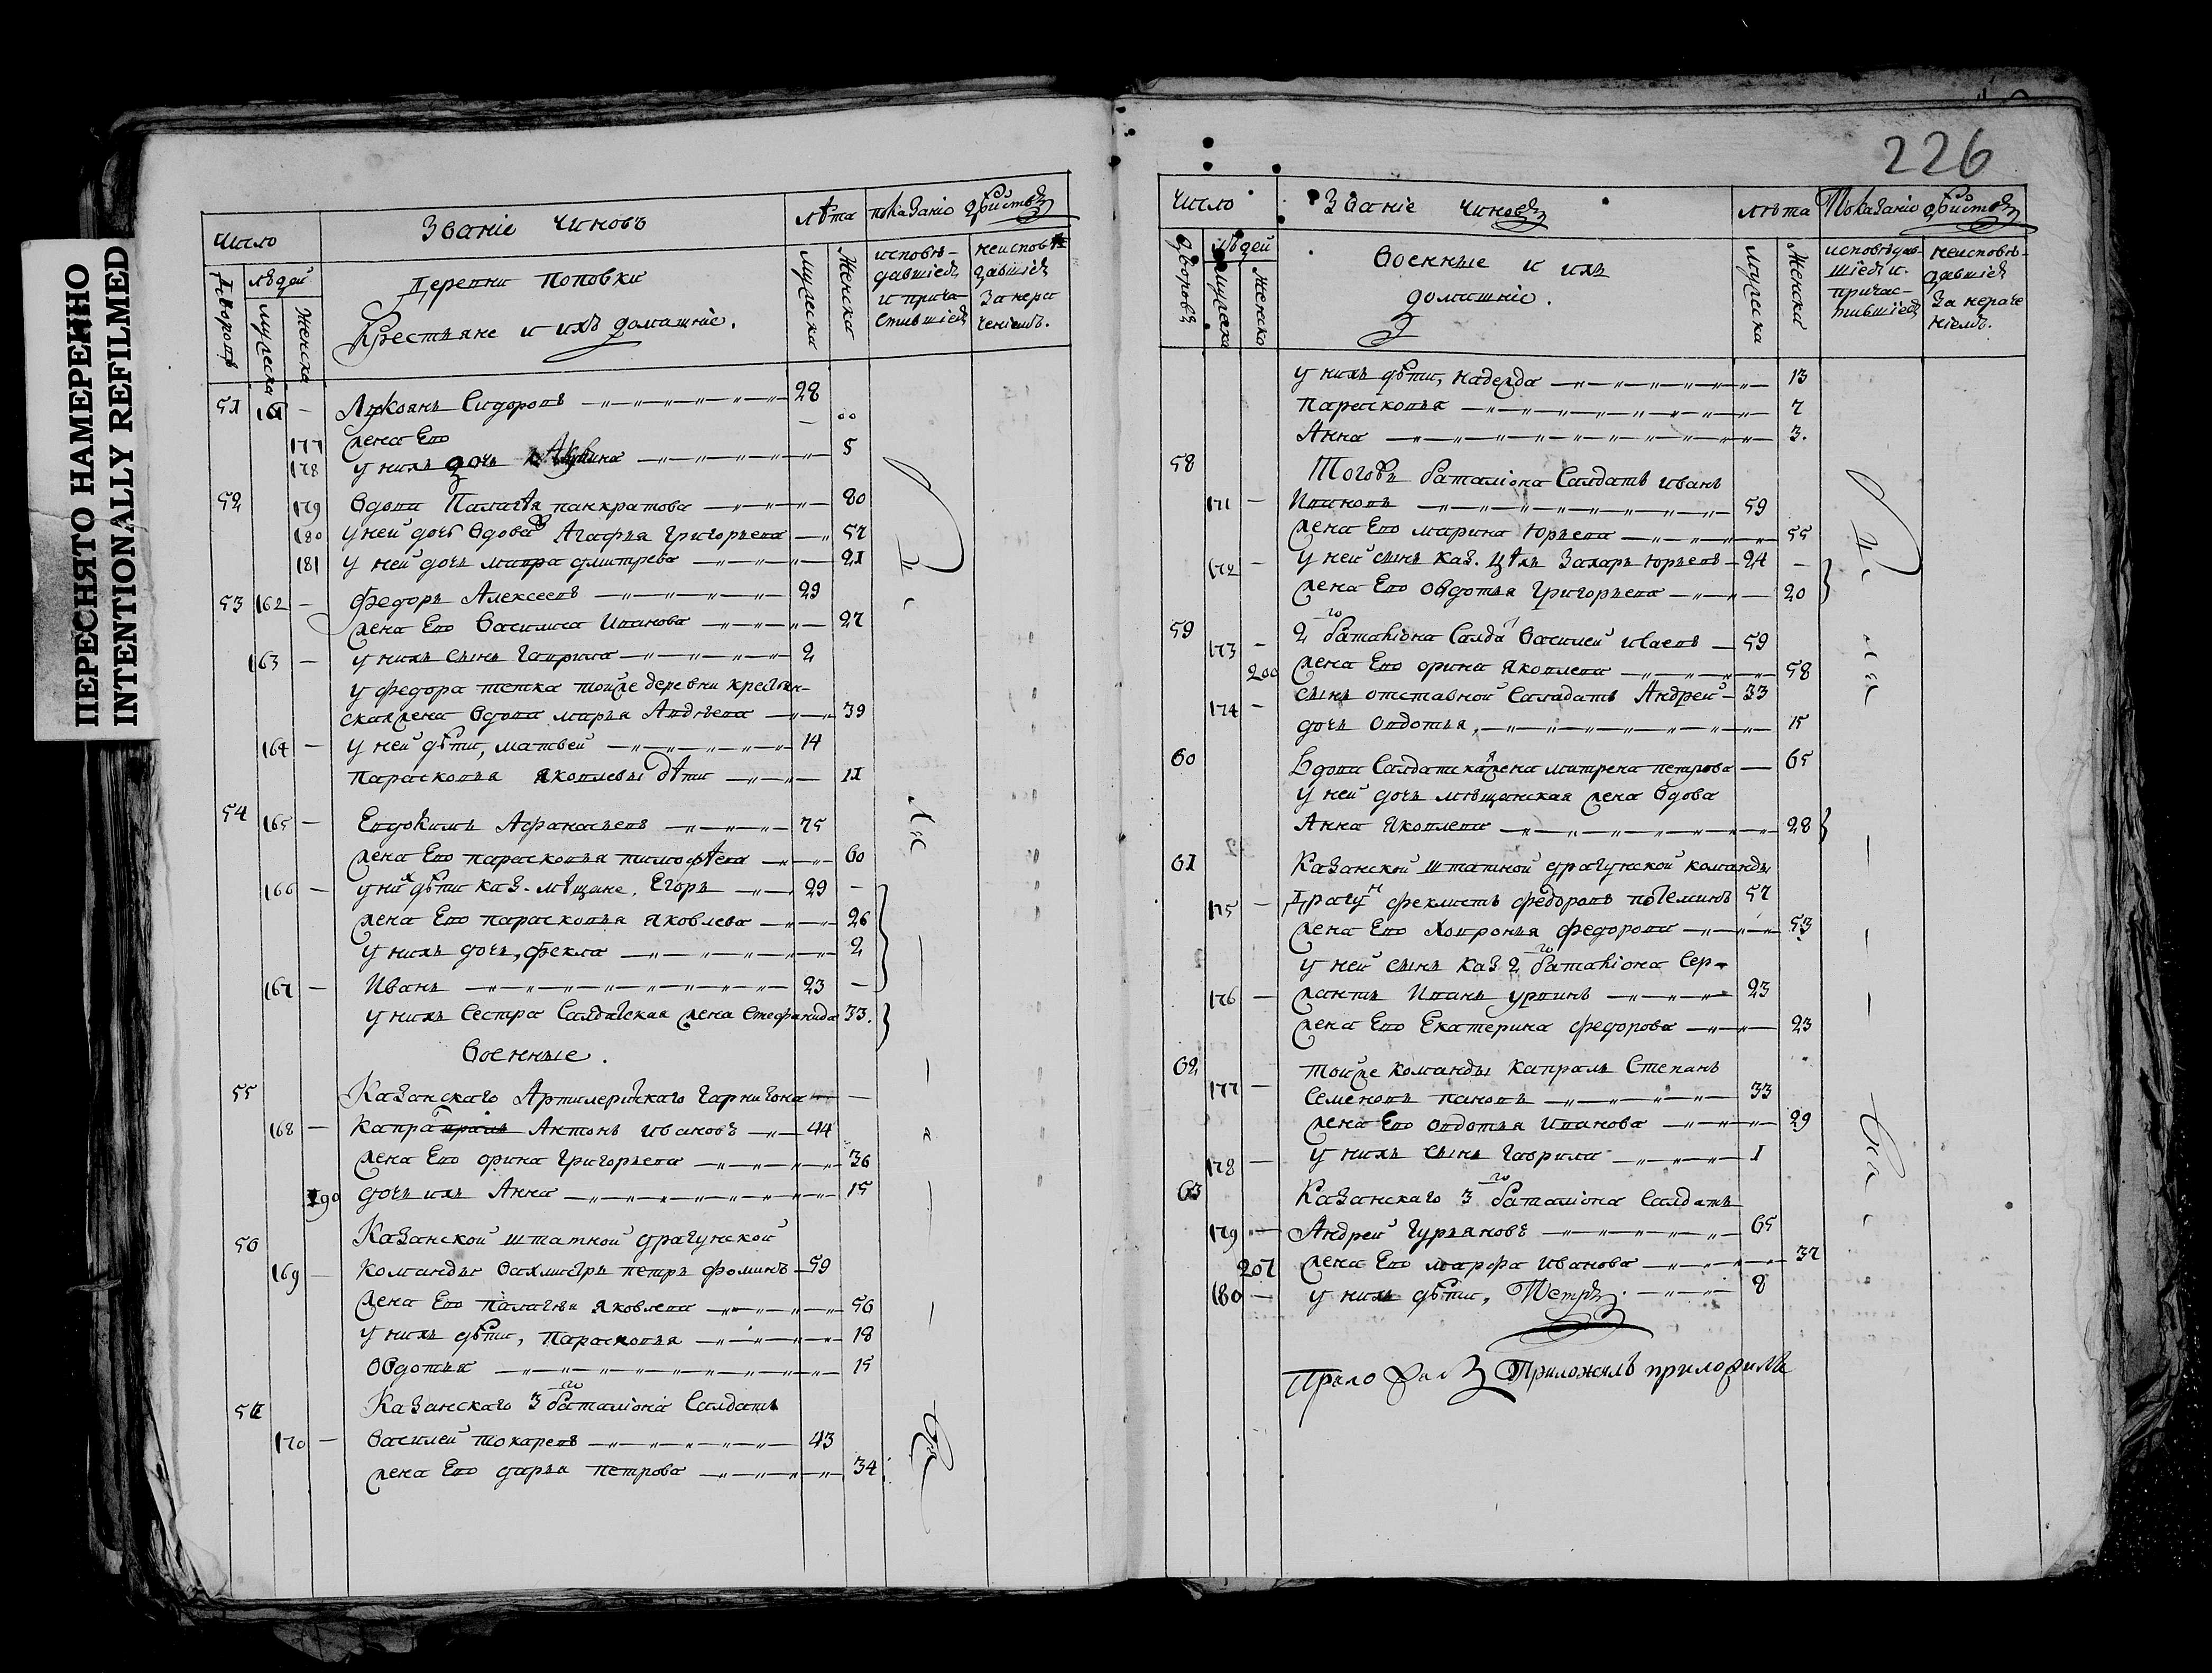 ПЕРЕСНЯТО НАМЕРЕННО
INTENTIONALLY REFILMED
Число
Званіе чиновъ
лѣта
показаніо
людей
Деревни Поповки
Крестьяне и ихъ домашніе.
мужеска
женска
мужеска
женска
исповѣ-
и прича-
51 161 — Лукоянъ Сидоровъ 28
177 жена Ево
178 у нихъ дочь 5
52 179 Вдова Палагѣя панкратова 80
180 у ней дочь вдова Агафья Григорьева 57
181 у ней дочь мавра дмитрева 21
53 162 — Федоръ Алексеевъ 29
жена Ево Василиса Иванова 27
163 — у нихъ сынъ Гаврила 2
у федора тетка тойже деревни крестьян-
ская жена вдова марья Андрѣева 39
164 — у ней дѣти, матвей 14
Парасковья яковлевы дѣти 11
54 165 — Евдокимъ Афанасьевъ 75
жена Ево парасковья тимофѣева 60
166 — у нихъ дѣти каз. мѣщане, Егоръ 29 —
жена Ево парасковья яковлева 26
у нихъ дочь, фекла 2
167 — Иванъ 23 —
у нихъ сестра Салдатская жена Стефанида 33.
Военные.
55 Казанскаго Артилерискаго гарнизона —
168 — капра Антонъ ивановъ 44
жена Ево орина григорьева 36
190 дочь ихъ Анна 15
56 Казанской штатной драгунской
169 — команды вахмистръ петръ фоминъ 59
жена Ево палагѣя яковлева 56
у нихъ дѣти, парасковья 18
Овдотья 15
57 Казанскаго 3го баталіона Салдатъ
170 — василей токаревъ 43
жена Ево дарья петрова 34
226
Число
Званіе чиновъ
лѣта
Показаніо
дворовъ
людей
мужеска
женско
Военные и ихъ
домашніе.
мужеска
женска
исповѣдав-
шіеся и
причас-
тившіеся
неисповѣ-
давшіеся
за нераче
ніемъ.
у нихъ дѣти, надежда 13
парасковья 7
Анна 3.
58 Тогожъ баталіона Салдатъ иванъ
171 — Ивановъ 59
жена Ево марина юрьева 55
172 — у ней сынъ каз. цѣхъ Захаръ юрьевъ 24 —
жена Ево овдотья григорьева 20
59 2го баталіона Салда василей исаевъ
173 — 59
200 жена Ево орина яковлева 58
174 — сынъ отставной Салдатъ Андрей 33
дочь овдотья, 15
60 Вдова Салдатская жена матрена петрова 65
у ней дочь мѣщанская жена вдова
Анна яковлева 28
61 Казанской штатной драгунской команды
175 — Драгунъ феклистъ федоровъ 57
жена Ево Хавронья федорова 53
у ней сынъ каз 2го баталіона Сер-
176 — жантъ Иванъ 23
жена Ево Екатерина федорова 23
62 тойже команды капралъ Степанъ
177 — Семеновъ пановъ 33
жена Ево овдотья иванова 29
178 — у нихъ сынъ гаврила 1
63 Казанскаго 3го баталіона Салдатъ
179 — Андрей гурьяновъ 65
207 жена Ево марфа иванова 37
180 — у нихъ дѣти, Петръ. 8
Приложилъ приложилъ